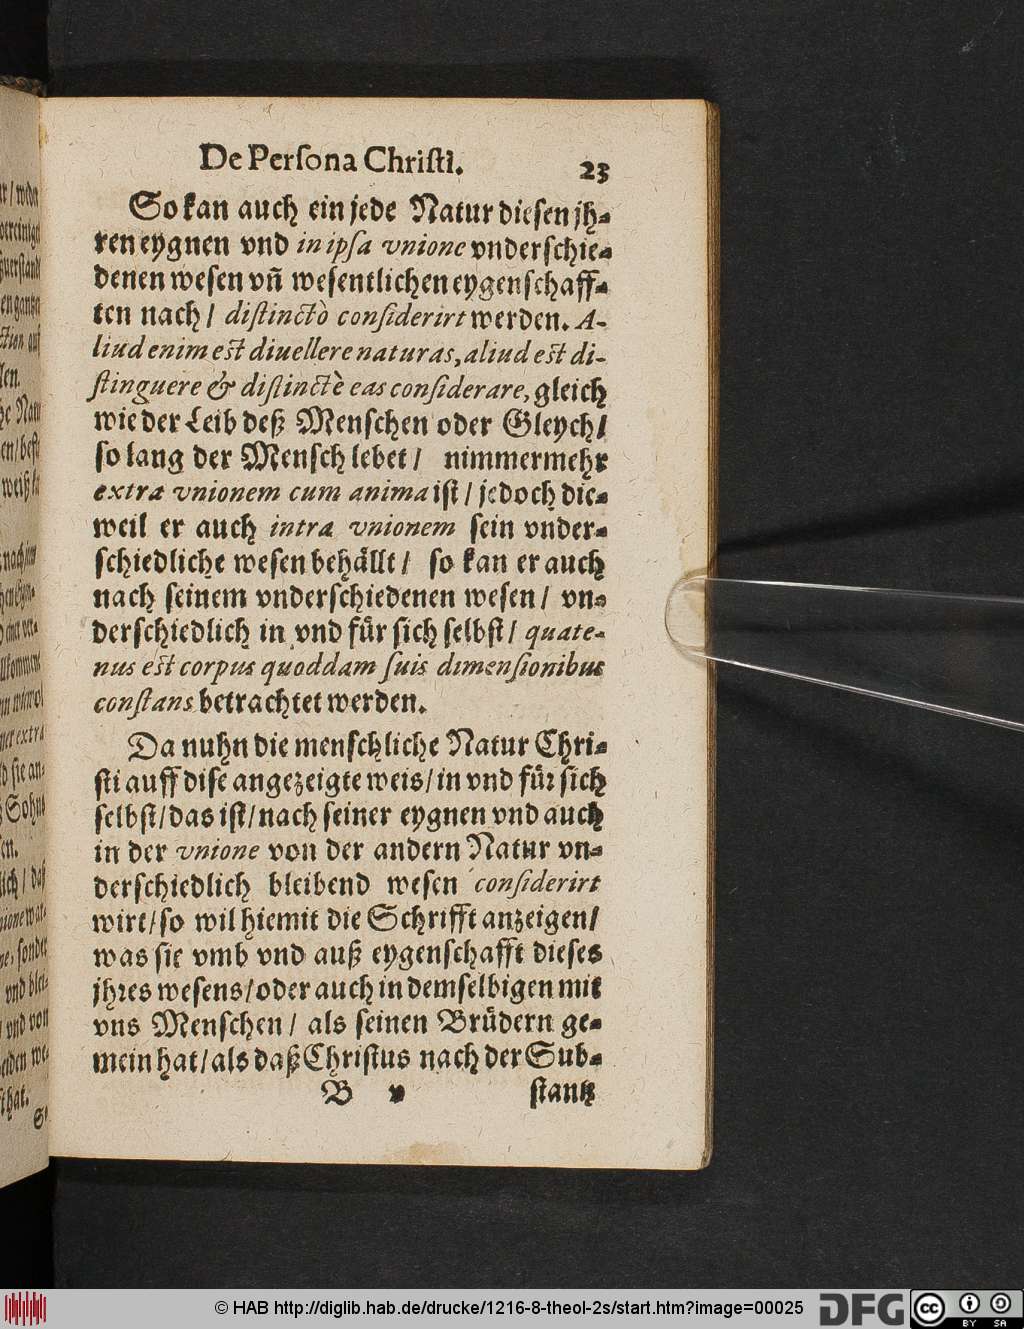 De Perſona Chriſti. 23
So kan auch ein jede Natur dieſen jh-
ren eygnen vnd in ipſa vnione vnderſchie-
denen weſen vñ weſentlichen eygenſchaff-
ten nach/ diſtinctò conſiderirt werden. A-
liud enim eſt diuellere naturas, aliud eſt di-
ſtinguere & diſtinctè eas conſiderare, gleich
wie der Leib deß Menſchen oder Gleych/
ſo lang der Menſch lebet/ nimmermehr
extra vnionem cum anima iſt/ jedoch die-
weil er auch intra vnionem ſein vnder-
ſchiedliche weſen behällt/ ſo kan er auch
nach ſeinem vnderſchiedenen weſen/ vn-
derſchiedlich in vnd für ſich ſelbſt/ quate-
nus eſt corpus quoddam ſuis dimenſionibus
conſtans betrachtet werden.
Da nuhn die menſchliche Natur Chri-
ſti auff diſe angezeigte weis/ in vnd für ſich
ſelbſt/ das iſt/ nach ſeiner eygnen vnd auch
in der vnione von der andern Natur vn-
derſchiedlich bleibend weſen conſiderirt
wirt/ ſo wil hiemit die Schrifft anzeigen/
was ſie vmb vnd auß eygenſchafft dieſes
jhres weſens/ oder auch in demſelbigen mit
vns Menſchen/ als ſeinen Brüdern ge-
mein hat/ als daß Chriſtus nach der Sub-
B v ſtantz
© HAB http://diglib.hab.de/drucke/1216-8-theol-2s/start.htm?image=00025 DFG cc BY SA